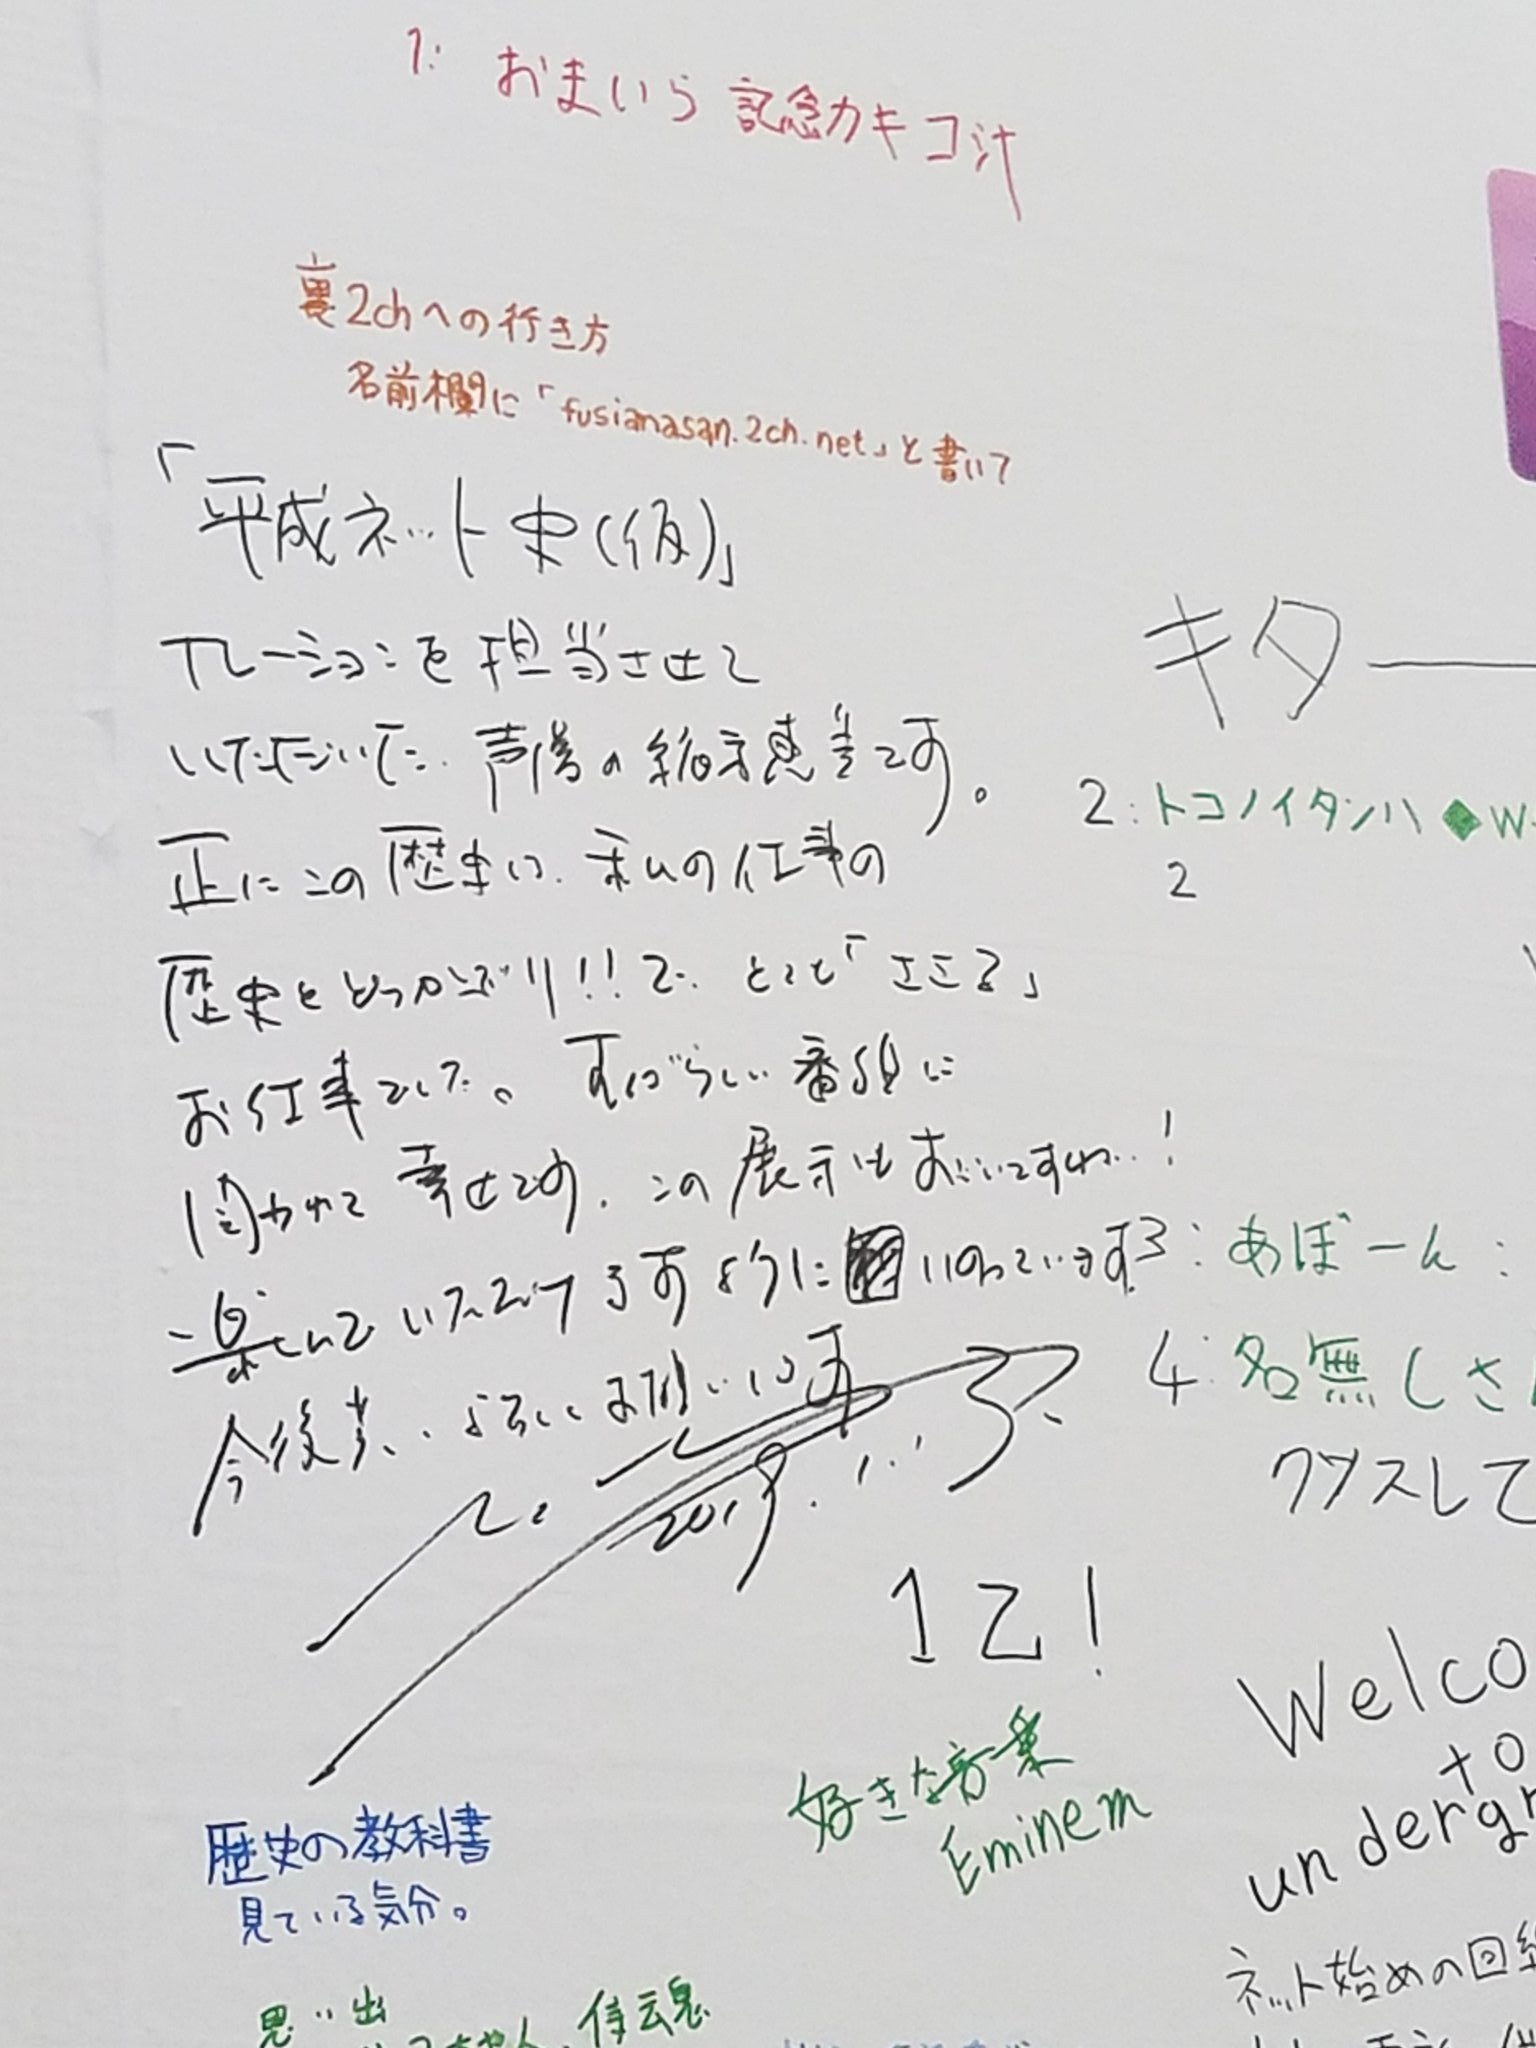 1: おまいら 記念カキコ汁
裏2chへの行き方
名前欄に「fusianasan.2ch.net」と書いて
「平成ネット史(仮)」
ナレーションを担当させて
いただいた、声優の緒方恵美です。
正にこの歴史は、私の仕事の
歴史とどっかぶり!!で、とても「ささる」
お仕事でした。すばらしい番組に
関われて幸せです。この展示も すごいですね…!
楽しんでいただけますように いのっています
今後共、よろしくお願いします
2019.
キター
2: トコノイタンハ◆W
2
3: あぼーん:
4: 名無しさん
ワクスして
1乙!
Welco
to
undergr
好きな音楽
Eminem
歴史の教科書
見ている気分。
思い出
侍魂
ネット始めの回線